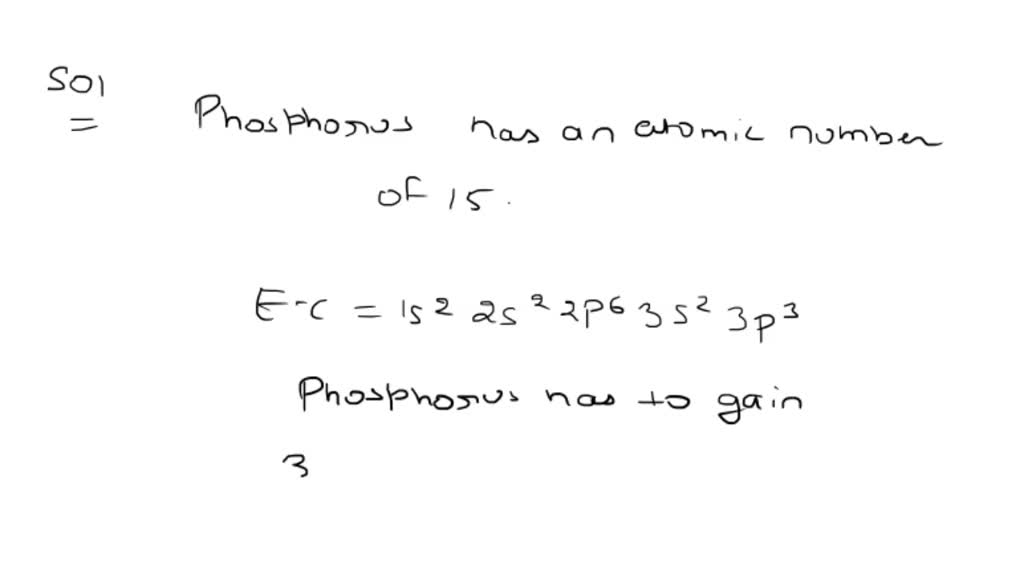 Sol
=
Phosphorus has an atomic number
of 15.
E-C = 1s² 2s² 2p⁶ 3s² 3p³
Phosphorus has to gain
3